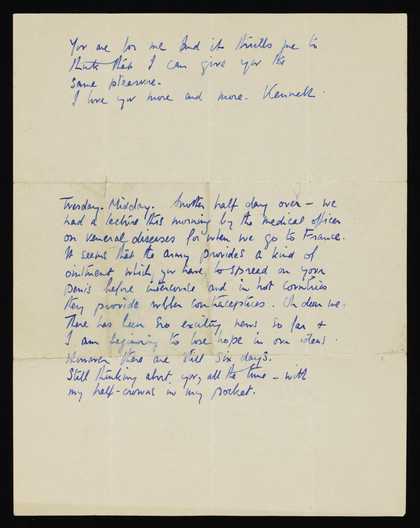 You are for me and it thrills me to
think that I can give you the
same pleasure.
I love you more and more. Kenneth.
Tuesday. Midday. Another half day over – we
had a lecture this morning by the medical officer
on venereal diseases for when we go to France.
It seems that the army provides a kind of
ointment which you have to spread on your
penis before intercourse and in hot countries
they provide rubber contraceptives. Oh dear me.
There has been no exciting news, so far &
I am beginning to lose hope in our ideas.
However there are still six days.
Still thinking about you, all the time – with
my half-crowns in my pocket.